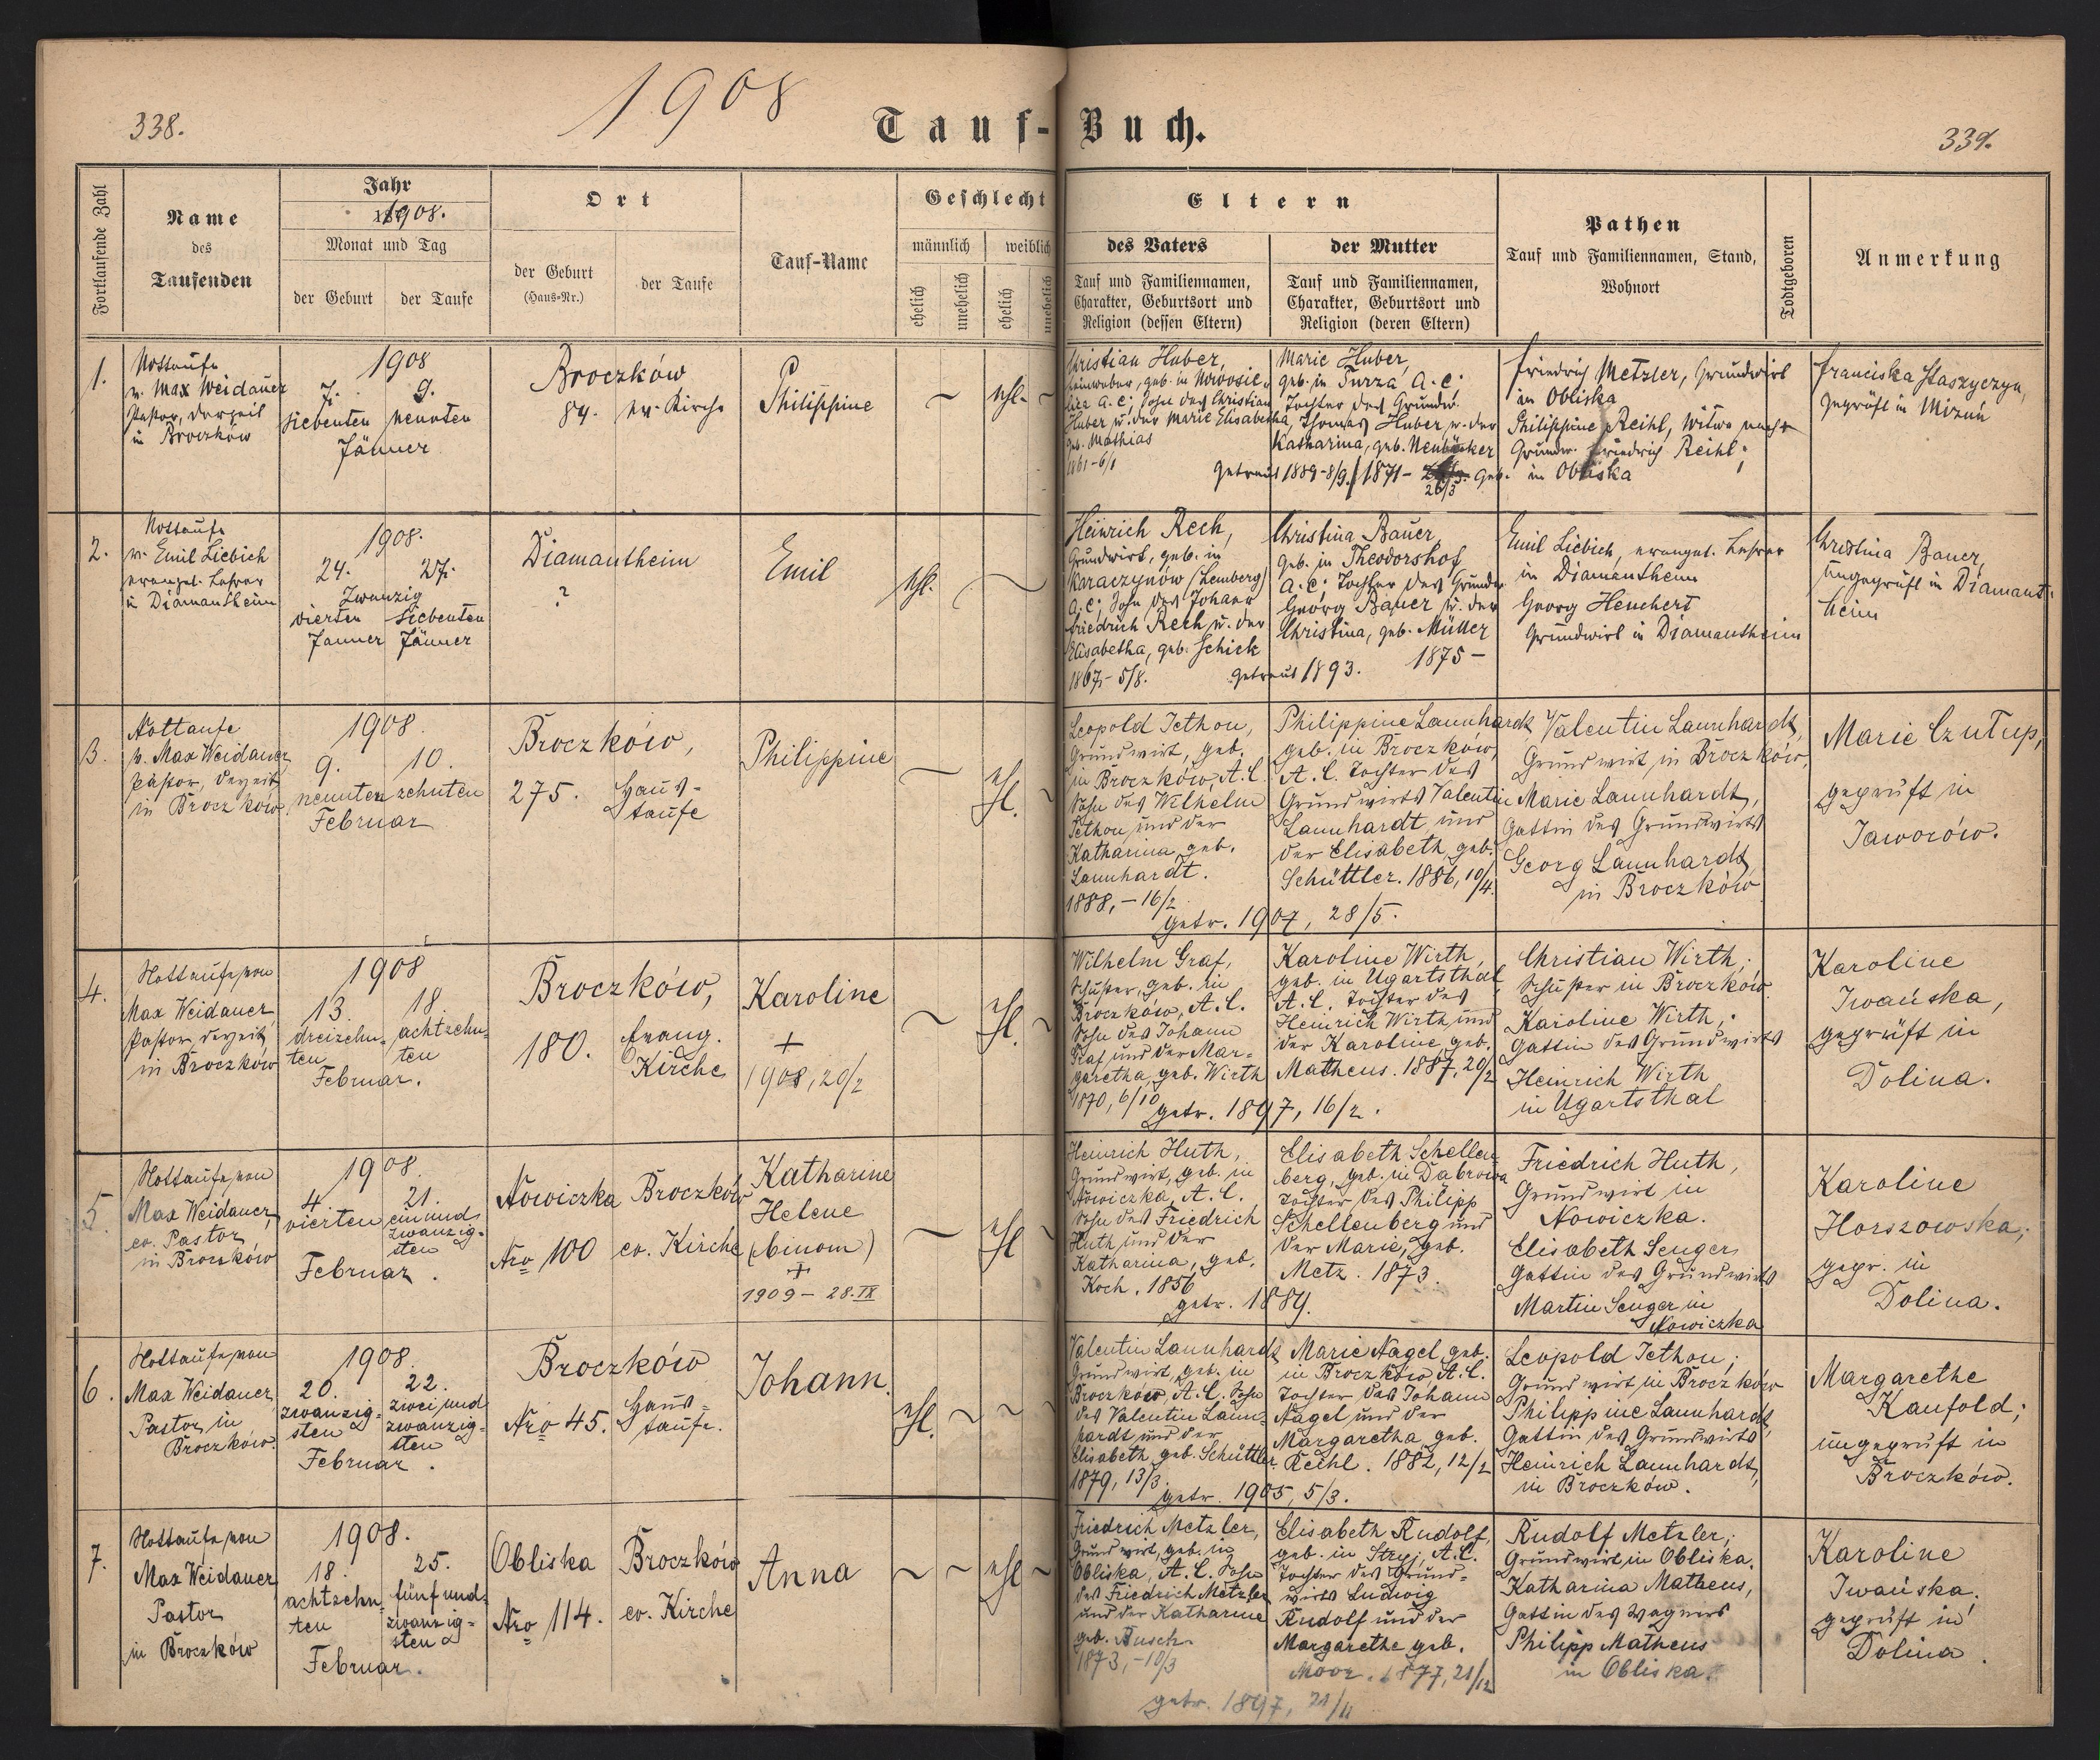 1908
338.
Tauf-Buch.
339.
Fortlaufende Zahl
Name
des
Taufenden
Jahr
1908.
Monat und Tag
der Geburt
der Taufe
Ort
der Geburt
(Haus-Nr.)
der Taufe
Tauf-Name
Geschlecht
männlich
weiblich
ehelich
unehelich
ehelich
unehelich
Eltern
des Vaters
Tauf und Familiennamen,
Charakter, Geburtsort und
Religion (dessen Eltern)
der Mutter
Tauf und Familiennamen,
Charakter, Geburtsort und
Religion (deren Eltern)
Pathen
Tauf und Familiennamen, Stand,
Wohnort
Todtgeboren
Anmerkung
1.
Nottaufe
v. Max Weidauer
Pastor, derzeit
in Broczków
1908
7. 9.
siebenten neunten
Jänner
Broczków
84. ev. Kirche
Philippine
ehl.
Christian Huber,
geb. in
A.C; Sohn des Christian
Huber u. der Marie Elisabetha,
geb. Mathias
1861-6/1
Marie Huber,
geb. in Turza A.C;
Tochter des Grundw.
Thomas Huber u. der
Katharina, geb. Neubäcker
getraut 1889-8/9. 1871- 26/3 geb.
Friedrich Metzler, Grundwirt
in Obliska
Philippine Reihl, Witwe nach
Grundw. Friedrich Reihl;
in Obliska
Franciska Staszyczyn,
geprüft in Mizuń
2.
Nottaufe
v. Emil Liebich
evangel. Lehrer
in Diamantheim
1908.
24. 27.
Zwanzig
vierten siebenten
Janner Jänner
Diamantheim
?
Emil
ehl.
Heinrich Rech,
Grundwirt, geb. in
Karaczynów (Lemberg)
A.C; Sohn des Johann
Friedrich Rech u. der
Elisabetha, geb. Schick
1867-5/8.
Christina Bauer,
geb. in Theodorshof
A.C; Tochter des Grundw.
Georg Bauer u. der
Christina, geb. Müller
1875-
getraut 1893.
Emil Liebich, evangel. Lehrer
in Diamantheim
Georg Henchert
Grundwirt in Diamantheim
Christina Bauer,
ungeprüft in Diamant-
heim
3.
Nottaufe
v. Max Weidauer
Pastor, derzeit
in Broczków
1908.
9. 10.
neunten zehnten
Februar
Broczków,
275. Haus-
taufe
Philippine
ehl.
Leopold Jethon,
Grundwirt, geb.
in Broczków, A.C.
Sohn des Wilhelm
Jethon und der
Katharina, geb.
Launhardt.
1888,-16/2
Philippine Launhardt
geb. in Broczków,
A.C. Tochter des
Grundwirts Valentin
Launhardt und
der Elisabeth, geb.
Schüttler. 1886, 10/4.
getr. 1907, 28/5.
Valentin Launhardt,
Grundwirt in Broczków,
Marie Launhardt,
Gattin des Grundwirts
Georg Launhardt,
in Broczków
Marie Czułup,
geprüft in
Jaworów.
4.
Nottaufe von
Max Weidauer
Pastor, derzeit
in Broczków
1908
13. 18.
dreizehn- achtzehn-
ten ten
Februar.
Broczków,
180. Evang.
Kirche
Karoline
+
1908, 20/2
ehl.
Wilhelm Graf,
Schuster, geb. in
Broczków, A.C.
Sohn des Johann
Graf und der Mar-
garetha, geb. Wirth
1870, 6/10
Karoline Wirth,
geb. in Ugartsthal
A.C. Tochter des
Heinrich Wirth und
der Karoline, geb.
Matheus. 1887, 20/2
getr. 1897, 16/2.
Christian Wirth;
Schuster in Broczków
Karoline Wirth;
Gattin des Grundwirts
Heinrich Wirth
in Ugartsthal
Karoline
Iwańska,
geprüft in
Dolina.
5.
Nottaufe von
Max Weidauer
ev. Pastor
in Broczków
1908.
4 21.
vierten einund
zwanzig-
sten
Februar.
Nowiczka Broczków
Nro 100 ev. Kirche
Katharine
Helene
(binom)
+
1909 - 28.IX
ehl
Heinrich Huth,
Grundwirt, geb. in
Nowiczka, A.C.
Sohn des Friedrich
Huth und der
Katharina, geb.
Koch. 1856
Elisabeth Schellen
berg, geb. in Dabrowa
Tochter des Philipp
Schellenberg und
der Marie, geb.
Metz. 1873.
getr. 1889.
Friedrich Huth,
Grundwirt in
Nowiczka.
Elisabeth Senger
Gattin des Grundwirts
Martin Senger in
Nowiczka
Karoline
Horszowska;
gepr. in
Dolina.
6.
Nottaufe von
Max Weidauer
Pastor in
Broczków.
1908.
20. 22.
zwanzig- zwei und
sten zwanzig-
sten
Februar.
Broczków
Nro 45. Haus-
taufe.
Johann.
ehl.
Valentin Launhardt
Grundwirt, geb. in
Broczków, A.C. Sohn
des Valentin Laun-
hardt und der
Elisabeth geb. Schüttler
1879, 13/3.
Marie Nagel, geb.
in Broczków A.C.
Tochter des Johann
Nagel und der
Margaretha geb.
Reihl. 1882, 12/2
getr. 1905, 5/3.
Leopold Jethon;
Grundwirt in Broczków
Philippine Launhardt,
Gattin des Grundwirts
Heinrich Launhardt,
in Broczków.
Margarethe
Kaufold;
ungeprüft in
Broczków.
7.
Nottaufe von
Max Weidauer
Pastor
in Broczków
1908.
18. 25.
achtzehn- fünf und
ten zwanzig-
sten
Februar.
Obliska Broczków
Nro 114. ev. Kirche
Anna
ehl
Friedrich Metzler,
Grundwirt, geb. in
Obliska, A.C. Sohn
des Friedrich Metzler
und der Katharine
geb. Busch.
1873,-10/3
Elisabeth Rudolf,
geb. in Stryj, A.C.
Tochter des Grund-
wirts Ludwig
Rudolf und der
Margarethe geb.
Moor. 1877, 21/12
getr. 1897, 21/11
Rudolf Metzler;
Grundwirt in Obliska.
Katharina Matheus,
Gattin des Wagners
Philipp Matheus
in Obliska.
Karoline
Iwańska;
geprüft in
Dolina.